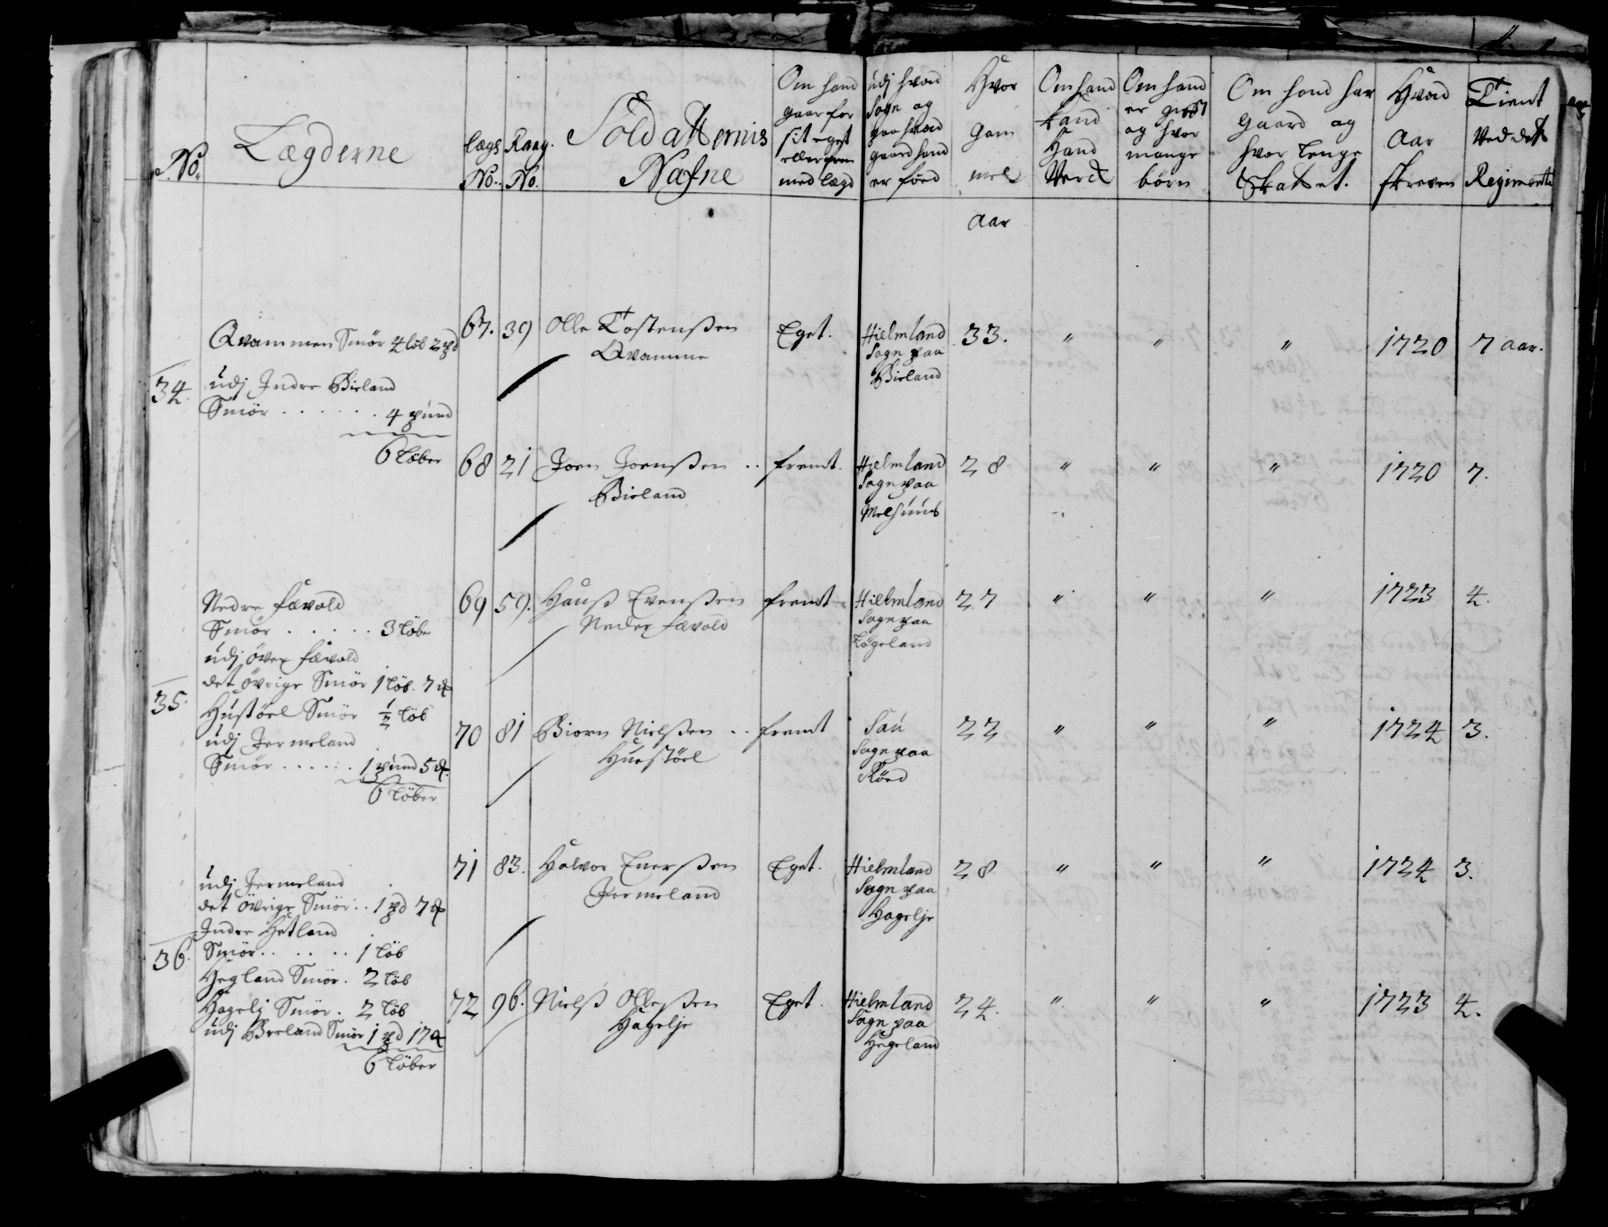 No. Lægderne Lægs No. Raag. No. Soldatternis Nafne
Om hand gaar for sit eget eller frem med lægd
udj hvad Sogn og paa hvad gaard hand er föed
Hvor gam mel Aar
Om hand kand Hand Verck
Om hand er gift og hvor mange börn
Om hand har Gaard og hvor lenge Skattet.
Hvad Aar skreven
Tient ved dett Regimente
34.
Qvammen Smör 4 löb 2 pd
udj Indre Bieland
Smör . . . . . . 4 pund
6 löber
67. 39 Olle Tostenßen Qvamme Eget. Hielmland Sogn paa Bieland 33. " " " 1720 7 aar.
68 21 Joen Joenßen .. Bieland fremt. Hielmland Sogn paa Melhuus 28 " " " 1720 7.
35.
Nedre fævold
Smör . . . . . 3 löber
udj över fævold
det övrige Smör 1 löb. 7 ℔
Hustöel Smör ½ löb
udj Jermeland
Smör . . . . . . 1 pund 5 ℔.
6 löber
69 59. Hanß Evenßen Neder fævold fremt Hielmland Sogn paa Løgeland 27 " " " 1723 4.
70 81 Biorn Nielßen .. Huestöel fremt Sau Sogn paa Röed 22 " " " 1724 3.
36.
udj Jermeland
det övrige Smör . . 1 pd 7 ℔
Indre Hetland
Smör . . . . . 1 löb
Hegland Smör . 2 löb
Hagelj Smör . 2 löb
udj Breland Smör 1 pd 17 ℔
6 löber
71 83. Halvor Enerßen Jermeland Eget. Hielmland Sogn paa Hagelje 28 " " " 1724 3.
72 96. Nielß Olleßen Hagelje Eget. Hielmland Sogn paa Hegeland 24. " " " 1723 4.